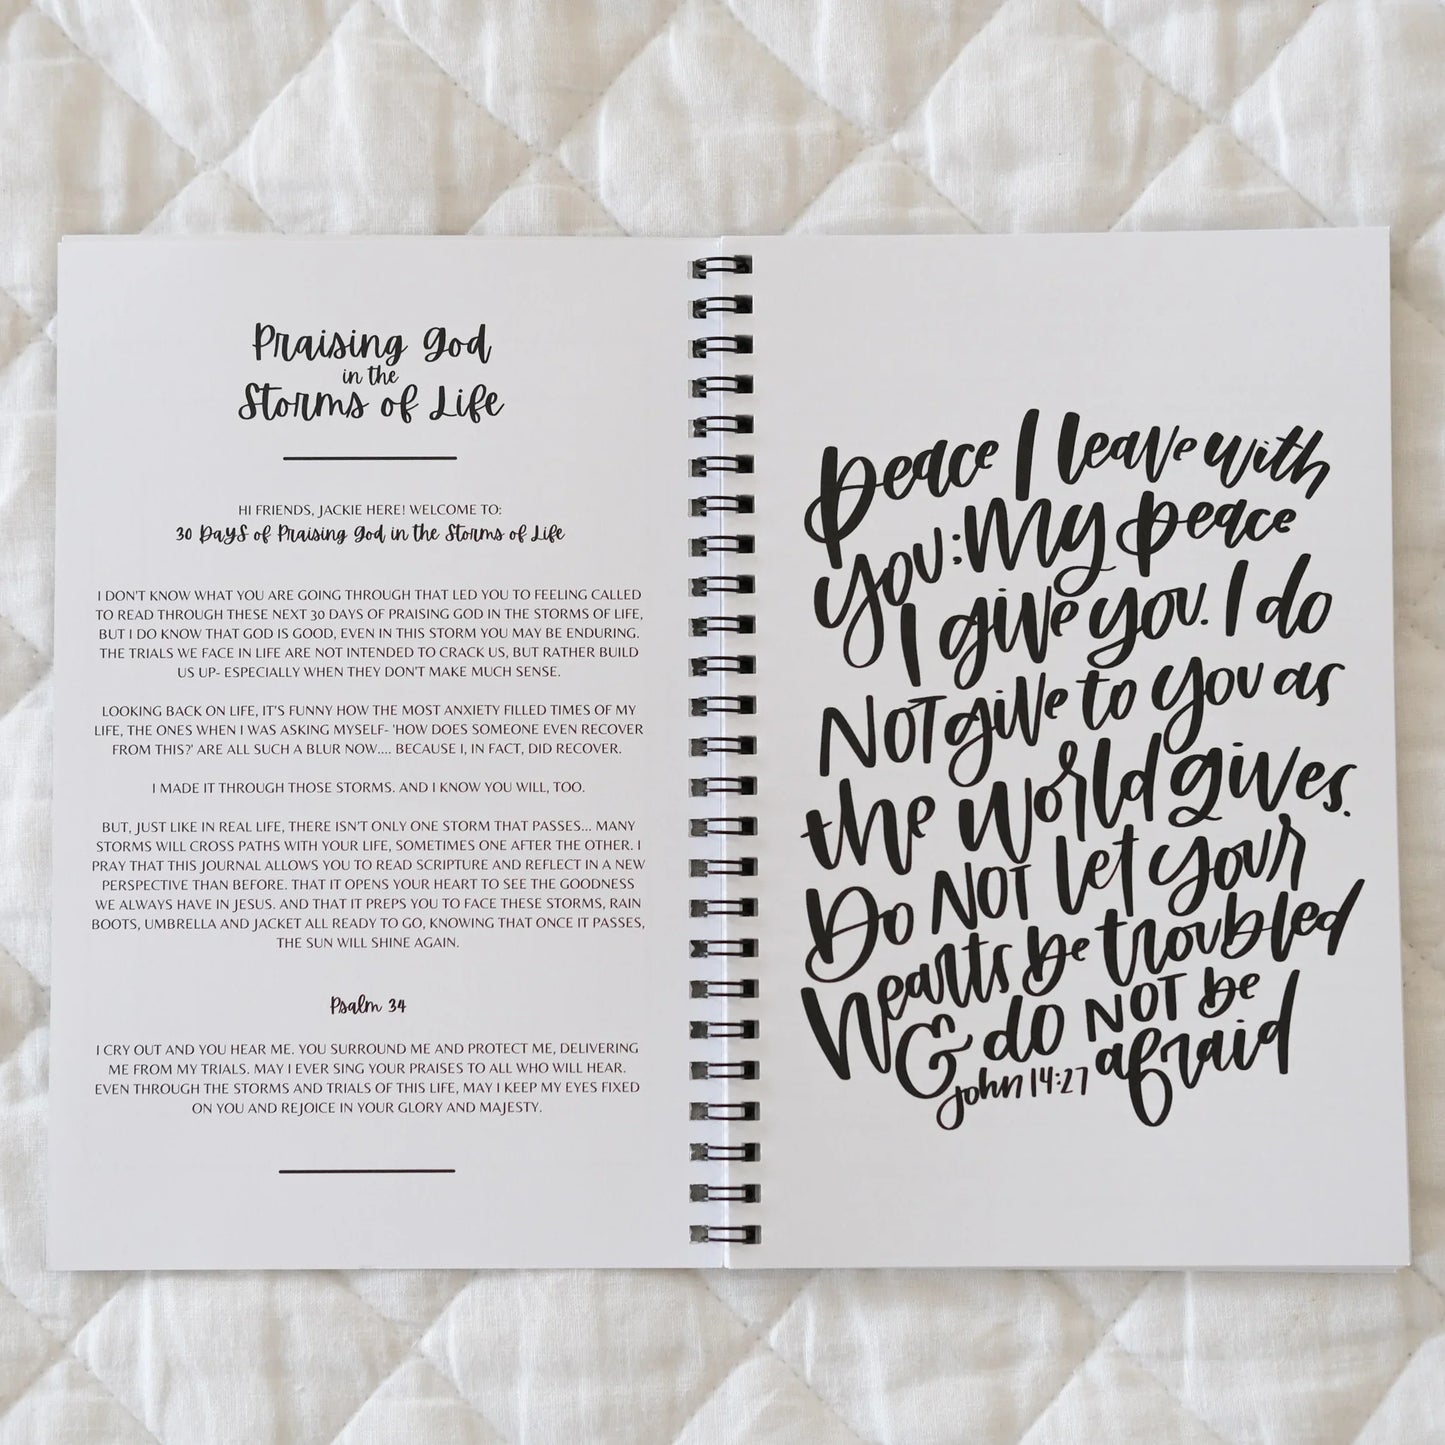 Praising God
in the
Storms of Life
HI FRIENDS, JACKIE HERE! WELCOME TO:
30 DAYS of Praising God in the Storms of Life
I DON'T KNOW WHAT YOU ARE GOING THROUGH THAT LED YOU TO FEELING CALLED
TO READ THROUGH THESE NEXT 30 DAYS OF PRAISING GOD IN THE STORMS OF LIFE,
BUT I DO KNOW THAT GOD IS GOOD, EVEN IN THIS STORM YOU MAY BE ENDURING.
THE TRIALS WE FACE IN LIFE ARE NOT INTENDED TO CRACK US, BUT RATHER BUILD
US UP- ESPECIALLY WHEN THEY DON'T MAKE MUCH SENSE.
LOOKING BACK ON LIFE, IT'S FUNNY HOW THE MOST ANXIETY FILLED TIMES OF MY
LIFE, THE ONES WHEN I WAS ASKING MYSELF- 'HOW DOES SOMEONE EVEN RECOVER
FROM THIS?' ARE ALL SUCH A BLUR NOW.... BECAUSE I, IN FACT, DID RECOVER.
I MADE IT THROUGH THOSE STORMS. AND I KNOW YOU WILL, TOO.
BUT, JUST LIKE IN REAL LIFE, THERE ISN'T ONLY ONE STORM THAT PASSES... MANY
STORMS WILL CROSS PATHS WITH YOUR LIFE, SOMETIMES ONE AFTER THE OTHER. I
PRAY THAT THIS JOURNAL ALLOWS YOU TO READ SCRIPTURE AND REFLECT IN A NEW
PERSPECTIVE THAN BEFORE. THAT IT OPENS YOUR HEART TO SEE THE GOODNESS
WE ALWAYS HAVE IN JESUS. AND THAT IT PREPS YOU TO FACE THESE STORMS, RAIN
BOOTS, UMBRELLA AND JACKET ALL READY TO GO, KNOWING THAT ONCE IT PASSES,
THE SUN WILL SHINE AGAIN.
Psalm 34
I CRY OUT AND YOU HEAR ME. YOU SURROUND ME AND PROTECT ME, DELIVERING
ME FROM MY TRIALS. MAY I EVER SING YOUR PRAISES TO ALL WHO WILL HEAR.
EVEN THROUGH THE STORMS AND TRIALS OF THIS LIFE, MAY I KEEP MY EYES FIXED
ON YOU AND REJOICE IN YOUR GLORY AND MAJESTY.
peace I leave with
you: My peace
I give you. I do
NOT give to you as
the world gives.
Do NOT let your
hearts be troubled
& do NOT be
afraid
John 14:27